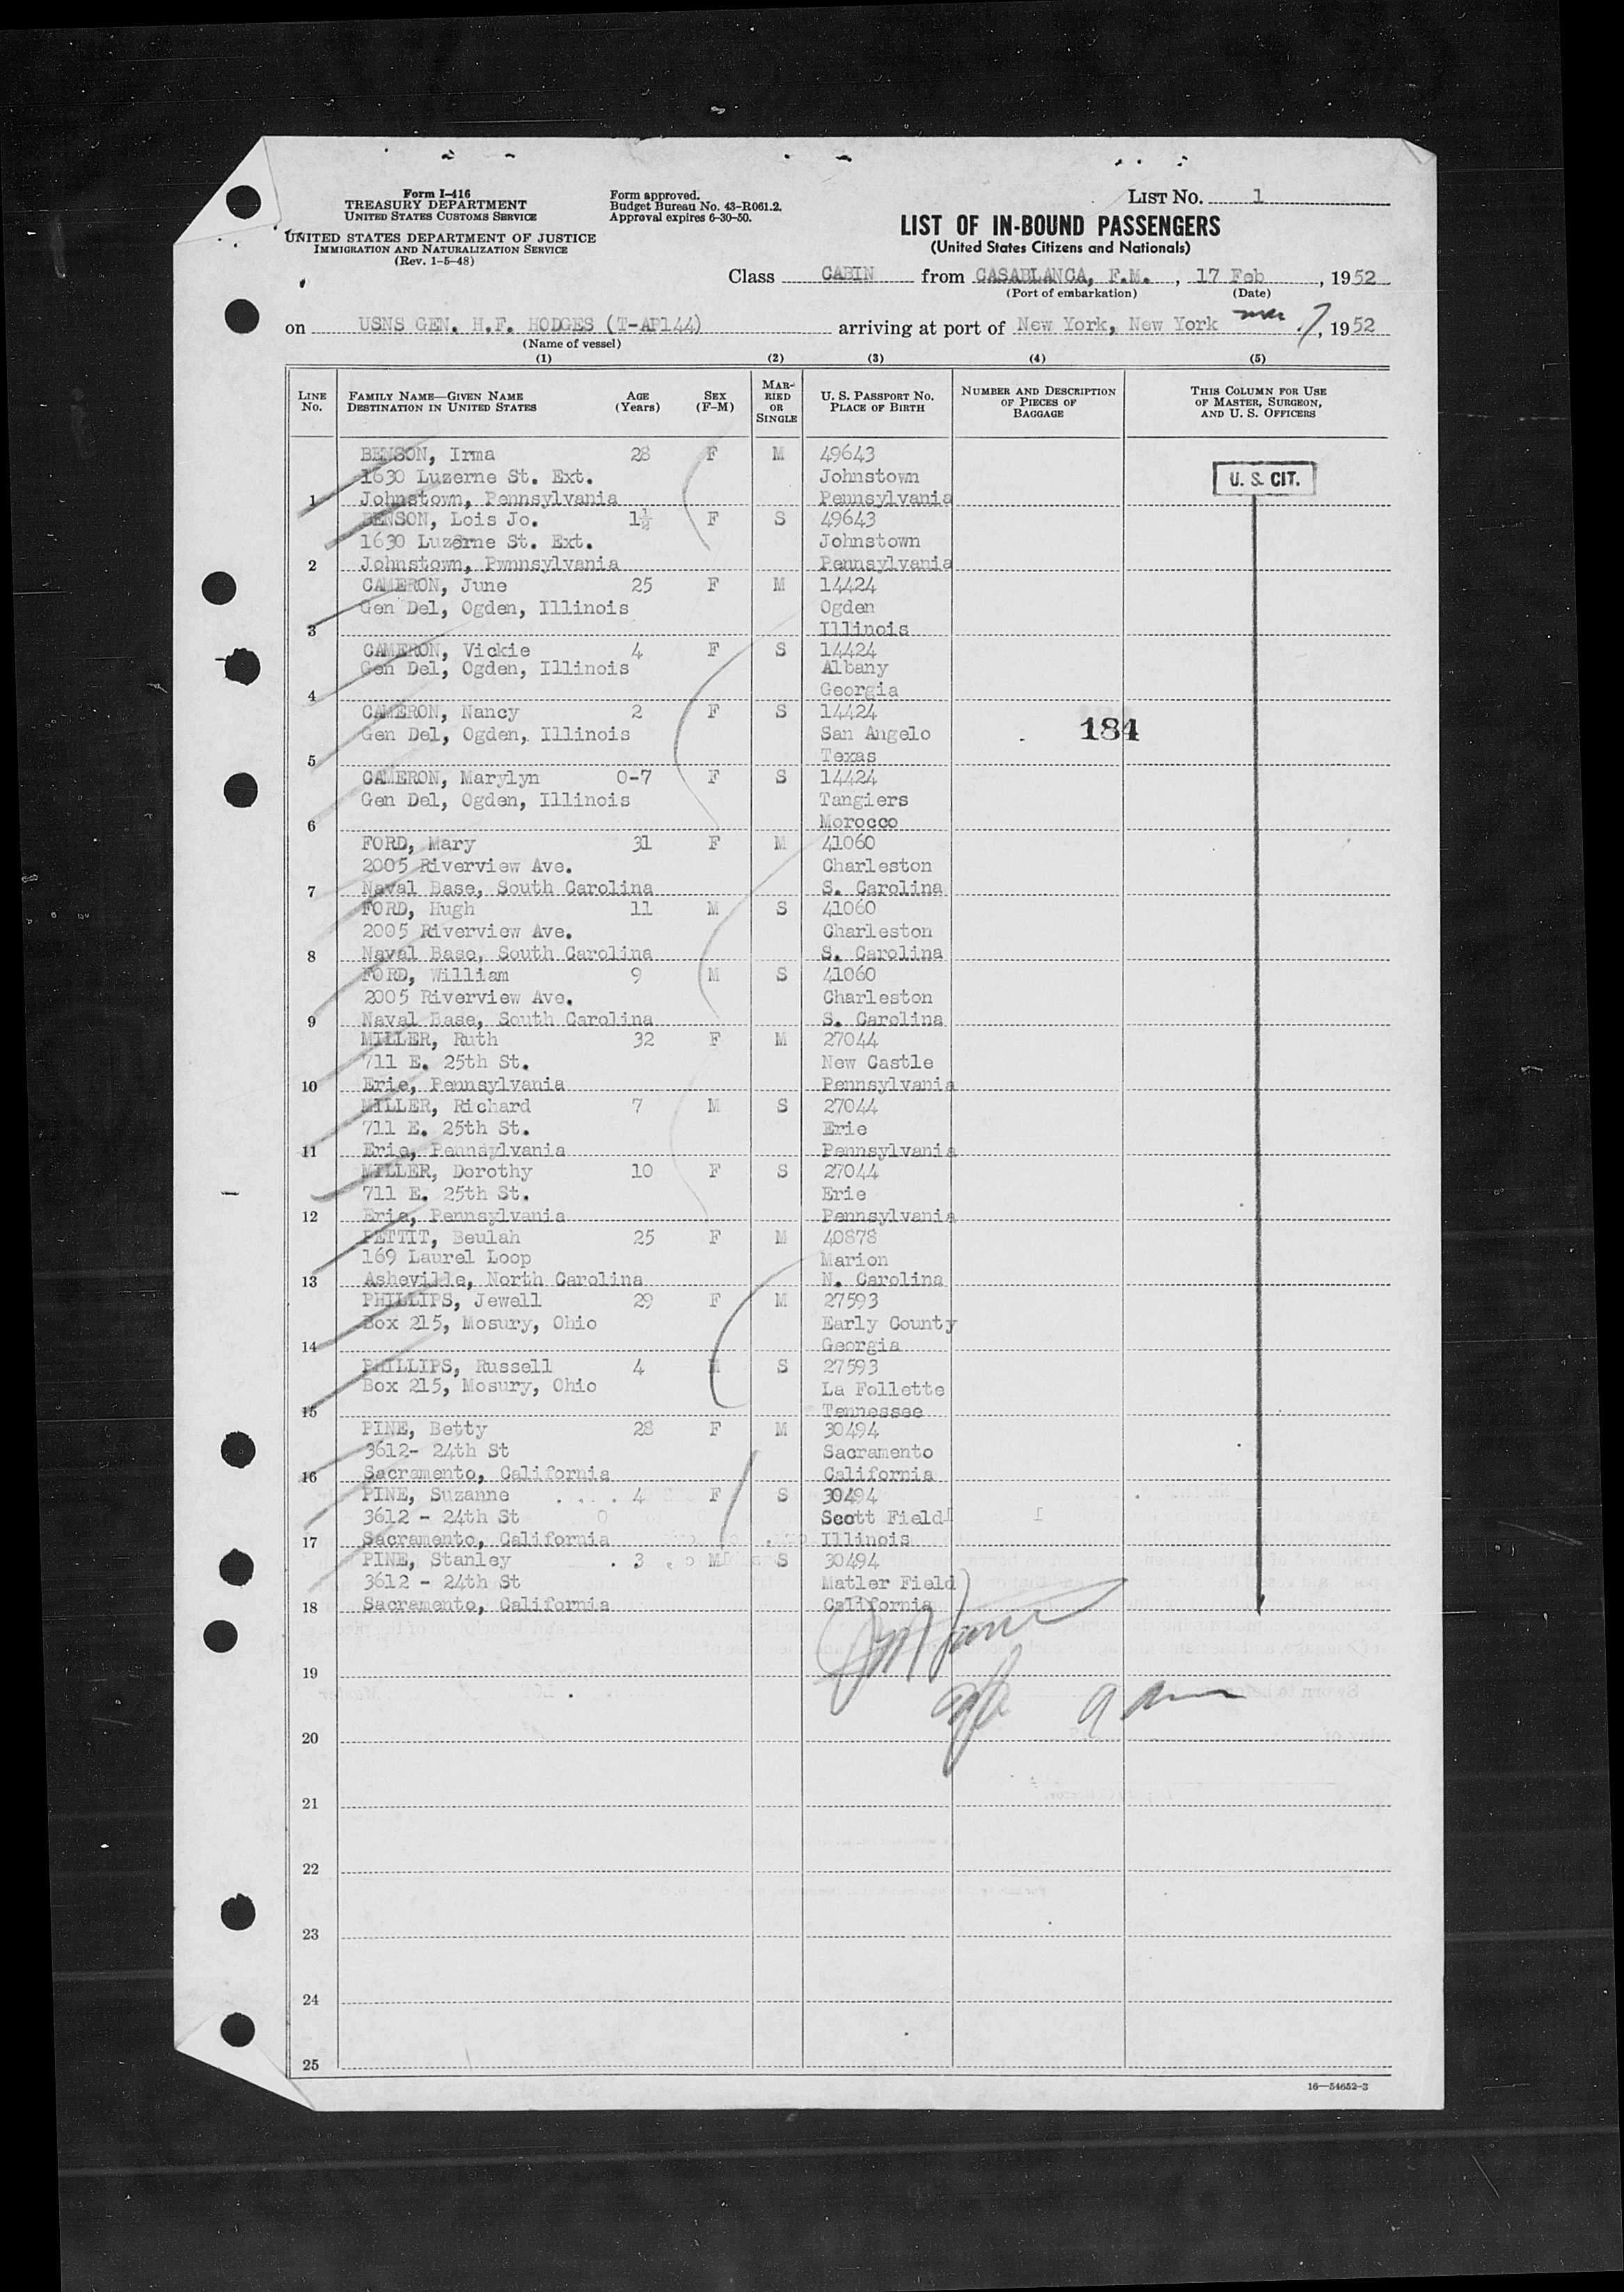 Form I-416
TREASURY DEPARTMENT
UNITED STATES CUSTOMS SERVICE
UNITED STATES DEPARTMENT OF JUSTICE
IMMIGRATION AND NATURALIZATION SERVICE
(Rev. 1-5-48)
Form approved.
Budget Bureau No. 43-R061.2.
Approval expires 6-30-50.
LIST No. 1
LIST OF IN-BOUND PASSENGERS
(United States Citizens and Nationals)
Class CABIN from CASABLANCA, F.M., 17 Feb, 1952
(Port of embarkation) (Date)
on USNS GEN. H.F. HODGES (T-AP144) arriving at port of New York, New York Mar 7, 1952
(Name of vessel)
(1) (2) (3) (4) (5)
LINE No. FAMILY NAME—GIVEN NAME DESTINATION IN UNITED STATES AGE (Years) SEX (F-M) MARRIED OR SINGLE U. S. PASSPORT No. PLACE OF BIRTH NUMBER AND DESCRIPTION OF PIECES OF BAGGAGE THIS COLUMN FOR USE OF MASTER, SURGEON, AND U. S. OFFICERS
BENSON, Irma 28 F M 49643
1630 Luzerne St. Ext. Johnstown U. S. CIT.
1 Johnstown, Pennsylvania Pennsylvania
BENSON, Lois Jo. 1½ F S 49643
1630 Luzerne St. Ext. Johnstown
2 Johnstown, Pwnnsylvania Pennsylvania
CAMERON, June 25 F M 14424
Gen Del, Ogden, Illinois Ogden
3 Illinois
CAMERON, Vickie 4 F S 14424
Gen Del, Ogden, Illinois Albany
4 Georgia
CAMERON, Nancy 2 F S 14424
Gen Del, Ogden, Illinois San Angelo 184
5 Texas
CAMERON, Marylyn 0-7 F S 14424
Gen Del, Ogden, Illinois Tangiers
6 Morocco
FORD, Mary 31 F M 41060
2005 Riverview Ave. Charleston
7 Naval Base, South Carolina S. Carolina
FORD, Hugh 11 M S 41060
2005 Riverview Ave. Charleston
8 Naval Base, South Carolina S. Carolina
FORD, William 9 M S 41060
2005 Riverview Ave. Charleston
9 Naval Base, South Carolina S. Carolina
MILLER, Ruth 32 F M 27044
711 E. 25th St. New Castle
10 Erie, Pennsylvania Pennsylvania
MILLER, Richard 7 M S 27044
711 E. 25th St. Erie
11 Erie, Pennsylvania Pennsylvania
MILLER, Dorothy 10 F S 27044
711 E. 25th St. Erie
12 Erie, Pennsylvania Pennsylvania
PETTIT, Beulah 25 F M 40878
169 Laurel Loop Marion
13 Asheville, North Carolina N. Carolina
PHILLIPS, Jewell 29 F M 27593
Box 215, Mosury, Ohio Early County
14 Georgia
PHILLIPS, Russell 4 M S 27593
Box 215, Mosury, Ohio La Follette
15 Tennessee
PINE, Betty 28 F M 30494
3612- 24th St Sacramento
16 Sacramento, California California
PINE, Suzanne 4 F S 30494
3612 - 24th St Scott Field
17 Sacramento, California Illinois
PINE, Stanley 3 M S 30494
3612 - 24th St Matler Field
18 Sacramento, California California
19
20
21
22
23
24
25
16—54652-3